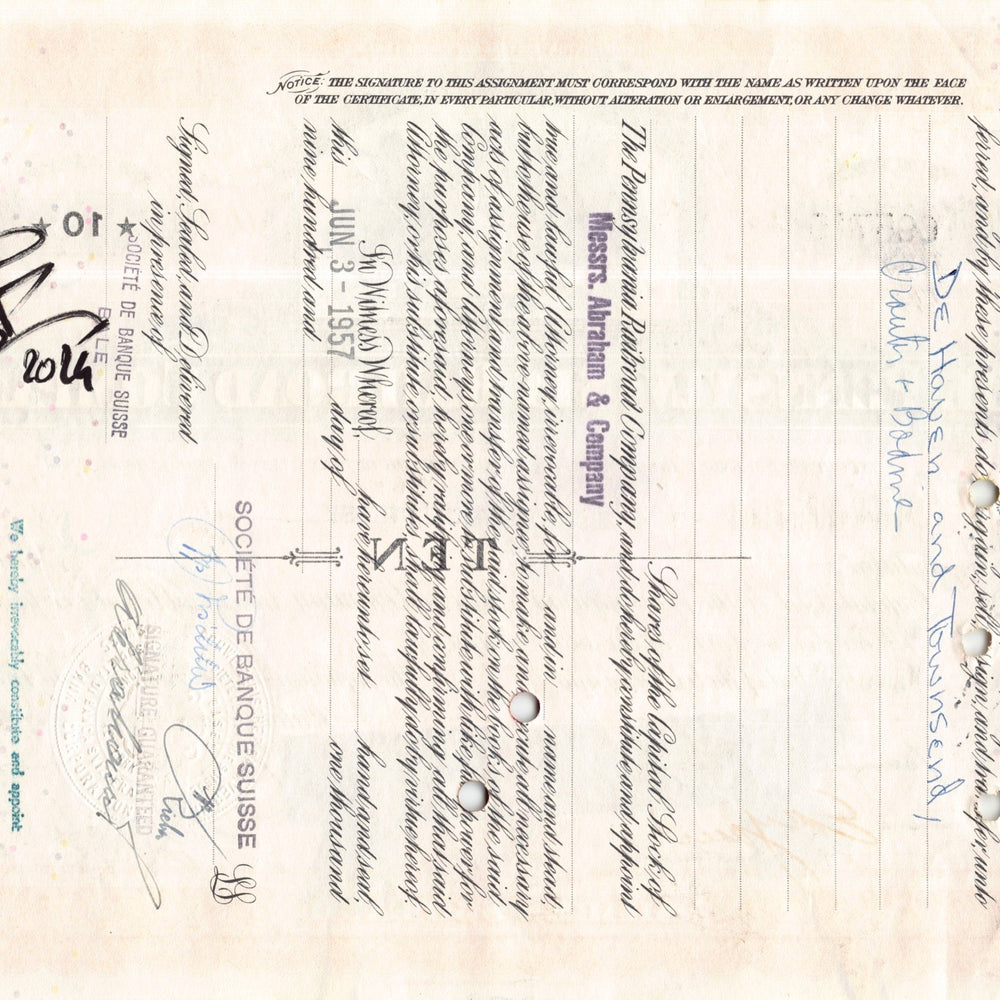 NOTICE: THE SIGNATURE TO THIS ASSIGNMENT MUST CORRESPOND WITH THE NAME AS WRITTEN UPON THE FACE
OF THE CERTIFICATE, IN EVERY PARTICULAR, WITHOUT ALTERATION OR ENLARGEMENT, OR ANY CHANGE WHATEVER.
ferred, and by these presents, do bargain, sell, assign, and transfer, unto
DE Haven and Townsend,
& Bodine
Shares of the Capital Stock of
The Pennsylvania Railroad Company, and do hereby constitute and appoint
Messrs. Abraham & Company
true and lawful Attorney, irrevocable for and in name and stead,
but to the use of the above named assignee to make and execute all necessary
acts of assignment and transfer of the said stock on the books of the said
Company, and the Attorney one or more persons to substitute with like powers for
the purposes aforesaid, hereby ratifying and confirming all that said
Attorney, or his substitute or substitutes, shall lawfully do by virtue hereof.
In Witness Whereof, have hereunto set hand and seal,
this JUN 3 - 1957 day of one thousand
nine hundred and
TEN
Signed, Sealed, and Delivered
in presence of
SOCIÉTÉ DE BANQUE SUISSE
LS
SIGNATURE GUARANTEED
SOCIÉTÉ DE BANQUE SUISSE
★ 10 ★
2024
We hereby irrevocably constitute and appoint